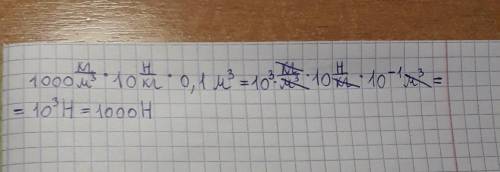 1000 кг/м³ · 10 Н/кг · 0,1 м³ = 10³ · кг/м³ · 10 Н/кг · 10⁻¹ м³ =
= 10³ Н = 1000 Н